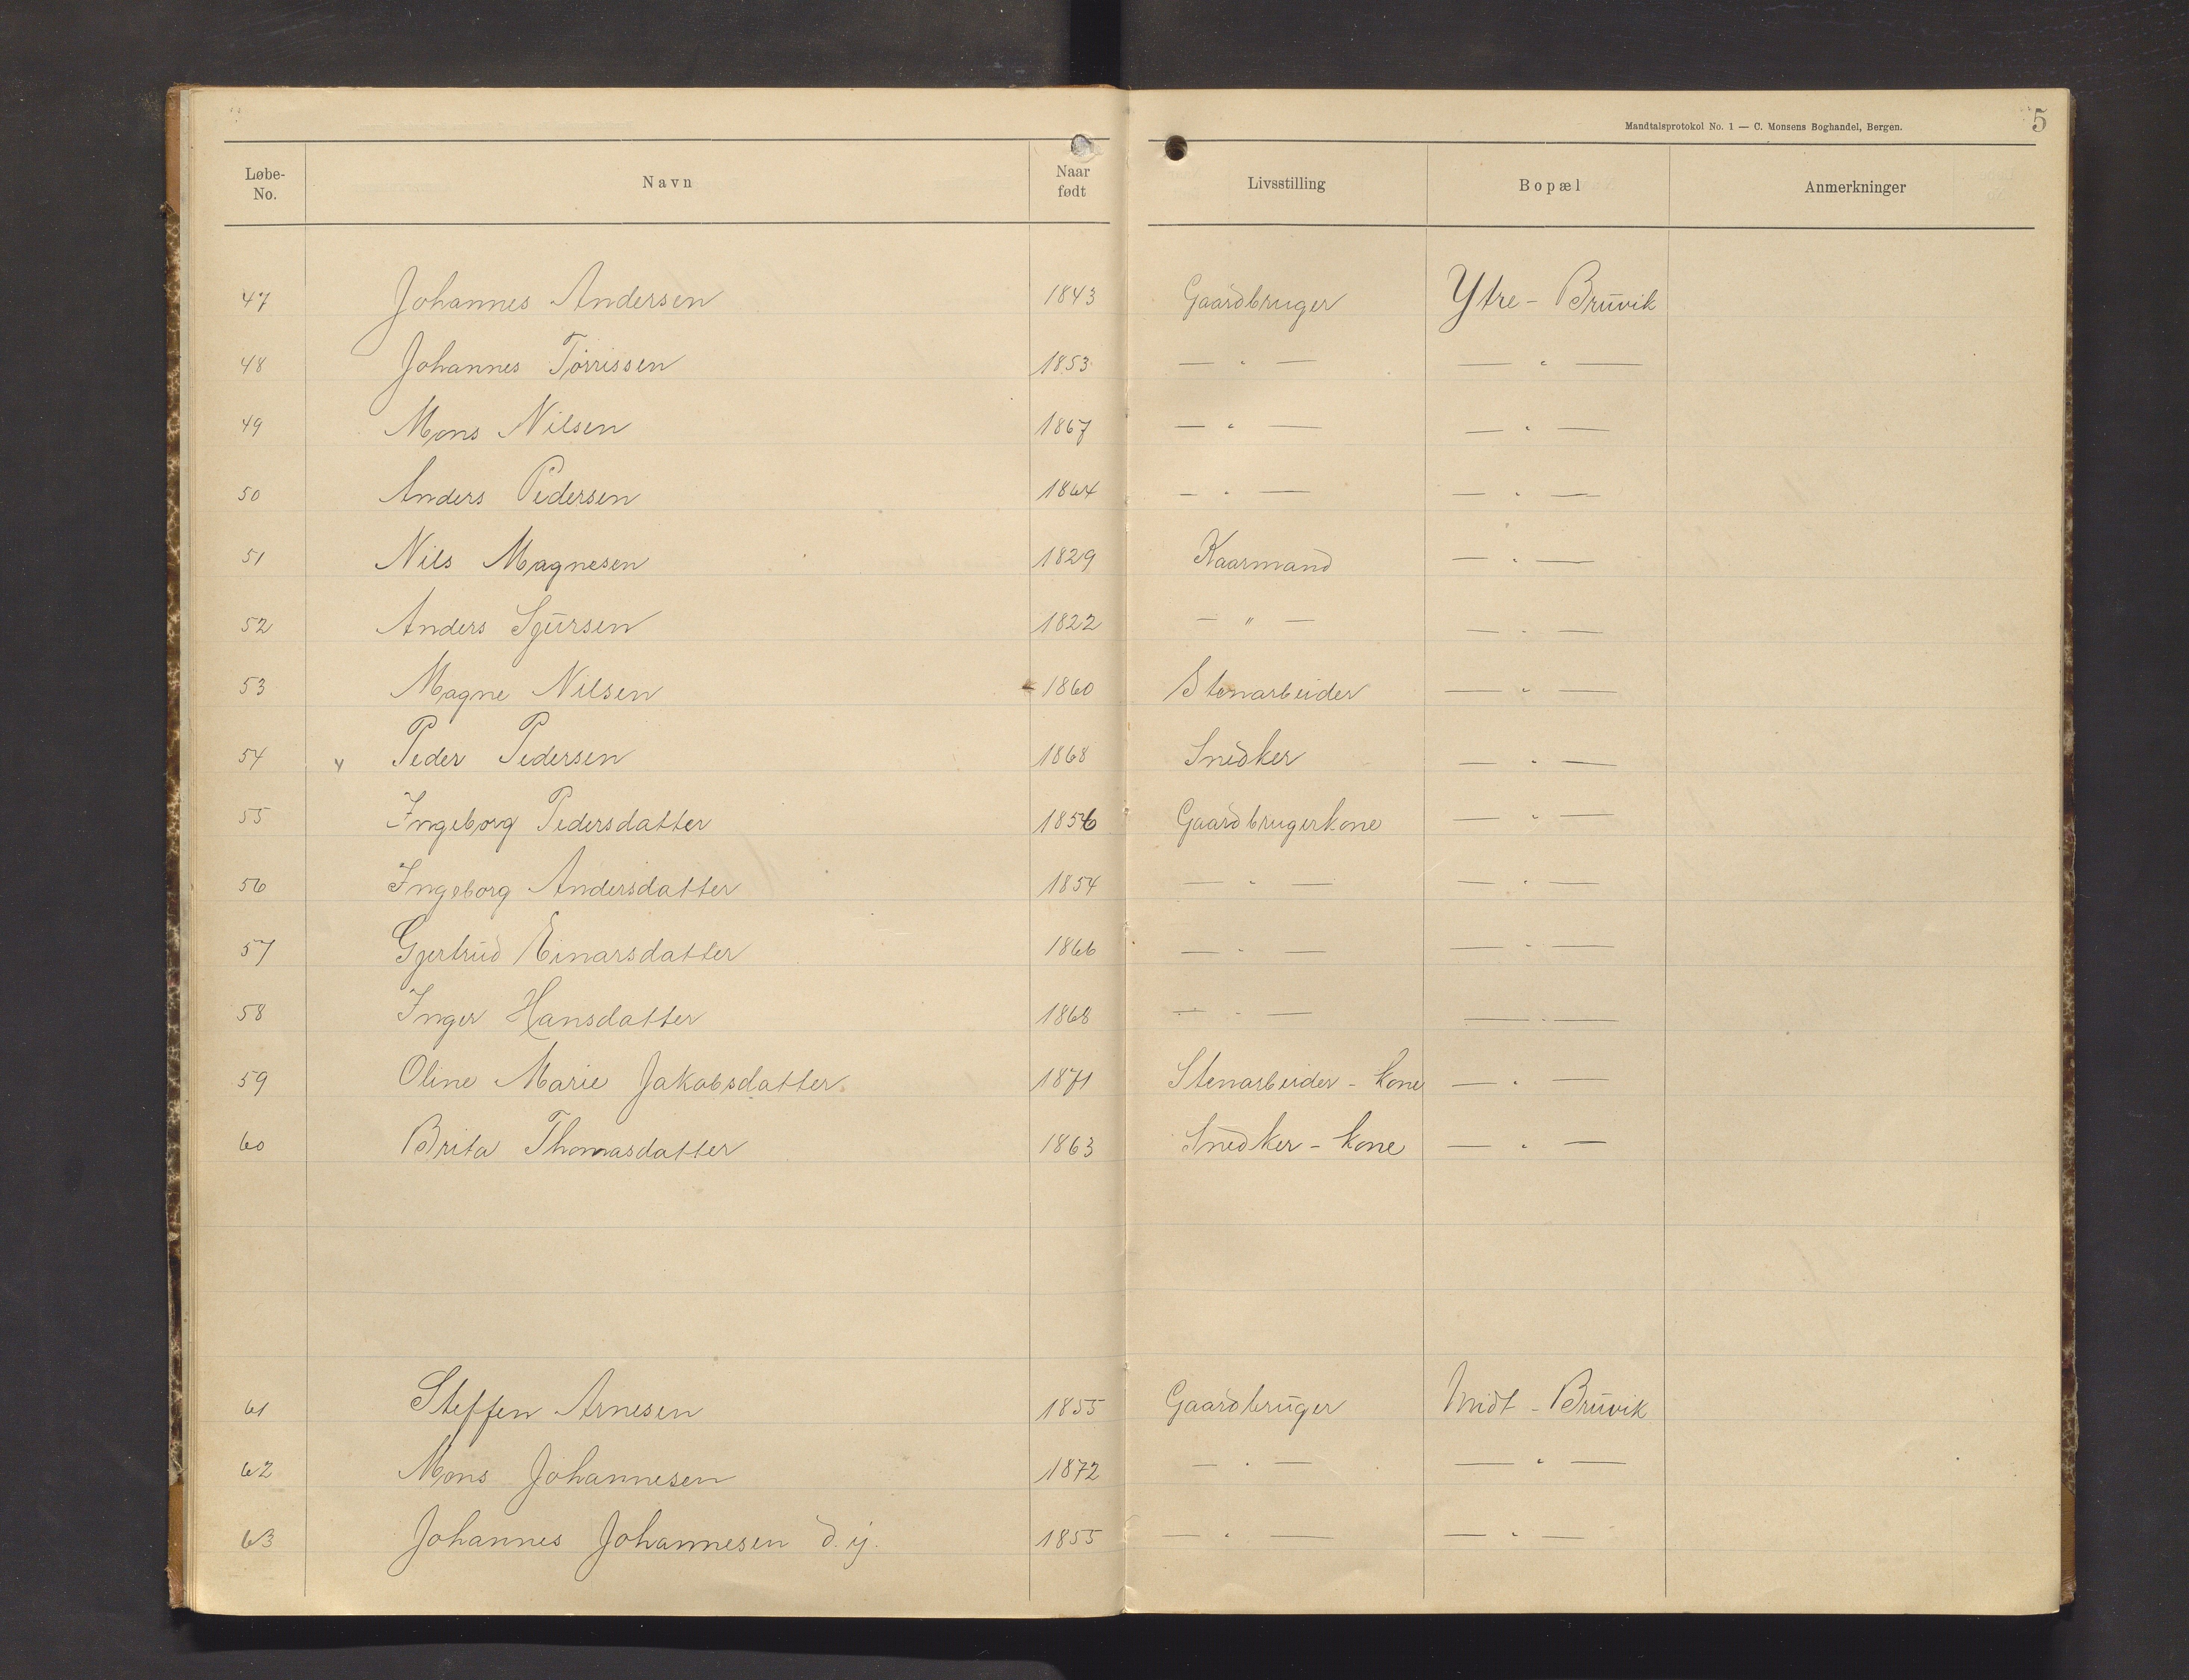 Mandtalsprotokol No. 1 — C. Monsens Boghandel, Bergen. 5
Løbe-No. Navn Naar født Livsstilling Bopæl Anmerkninger
47 Johannes Andersen 1843 Gaardbruger Ytre-Bruvik
48 Johannes Tørrissen 1853 — " — — " —
49 Mons Nilsen 1867 — " — — " —
50 Anders Pedersen 1864 — " — — " —
51 Nils Magnesen 1829 Kaarmand — " —
52 Anders Sjursen 1822 — " — — " —
53 Magne Nilsen 1860 Stenarbeider — " —
54 Peder Pedersen 1868 Snedker — " —
55 Ingeborg Pedersdatter 1856 Gaardbrugerkone — " —
56 Ingeborg Andersdatter 1854 — " — — " —
57 Gjertrud Einarsdatter 1866 — " — — " —
58 Inger Hansdatter 1868 — " — — " —
59 Oline Marie Jakobsdatter 1871 Stenarbeider-kone — " —
60 Brita Thomasdatter 1863 Snedker-kone — " —
61 Steffen Arnesen 1855 Gaardbruger Midt-Bruvik
62 Mons Johannesen 1872 — " — — " —
63 Johannes Johannesen d.y. 1855 — " — — " —